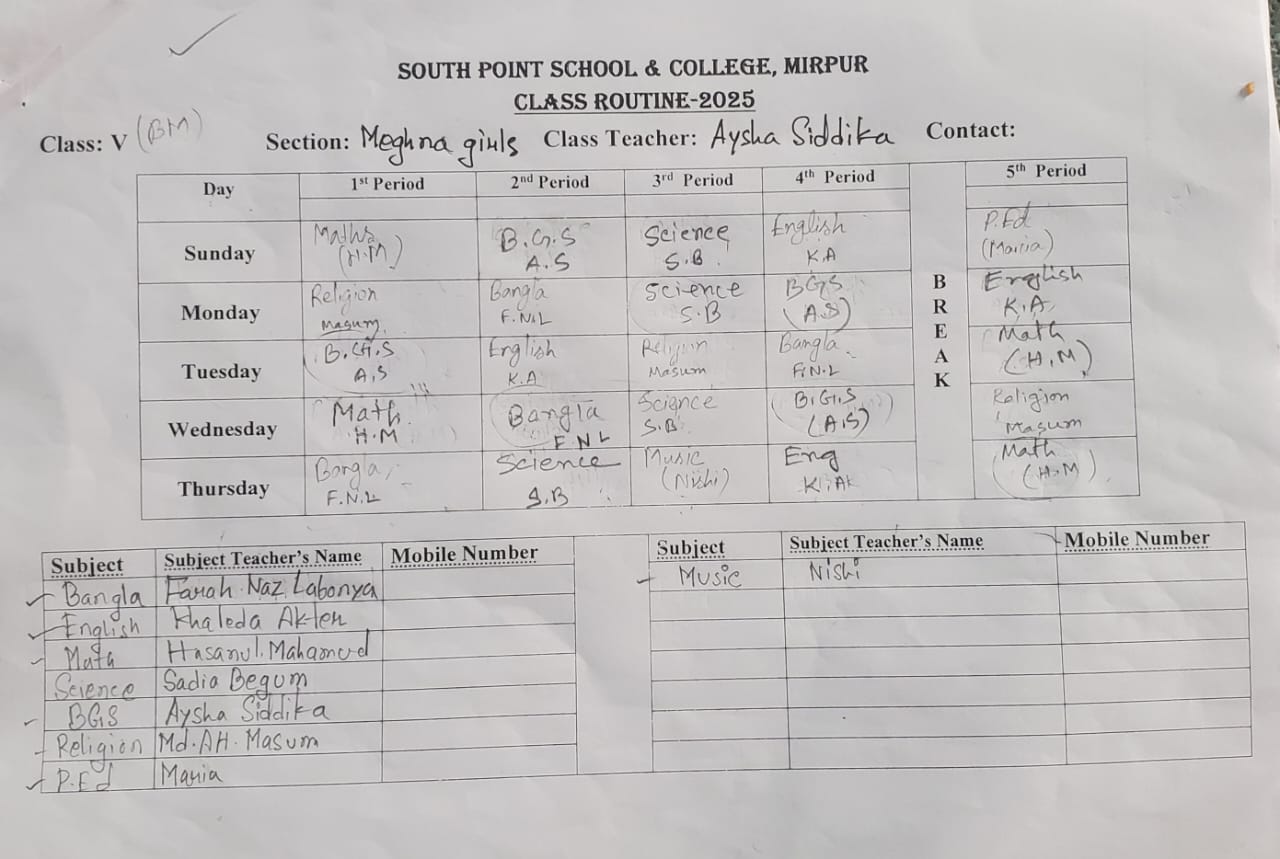 SOUTH POINT SCHOOL & COLLEGE, MIRPUR
CLASS ROUTINE-2025
Class: V (BM) Section: Meghna girls Class Teacher: Aysha Siddika Contact:
Day 1st Period 2nd Period 3rd Period 4th Period 5th Period
Sunday Maths (H.M) B.G.S A.S Science S.B. English K.A P.Ed (Maria)
Monday Religion Masum Bangla F.N.L Science S.B BGS (A.S) English K.A
Tuesday B.G.S A.S English K.A Religion Masum Bangla F.N.L Math (H.M)
Wednesday Math H.M Bangla F N L Science S.B B.G.S (A.S) Religion Masum
Thursday Bangla F.N.L Science S.B Music (Nishi) Eng K.A Math (H.M)
BREAK
Subject Subject Teacher's Name Mobile Number Subject Subject Teacher's Name Mobile Number
Bangla Farah Naz Labonya Music Nishi
English Khaleda Akter
Math Hasanul
Science Sadia Begum
BGS Aysha Siddika
Religion Md. AH. Masum
P.Ed Maria